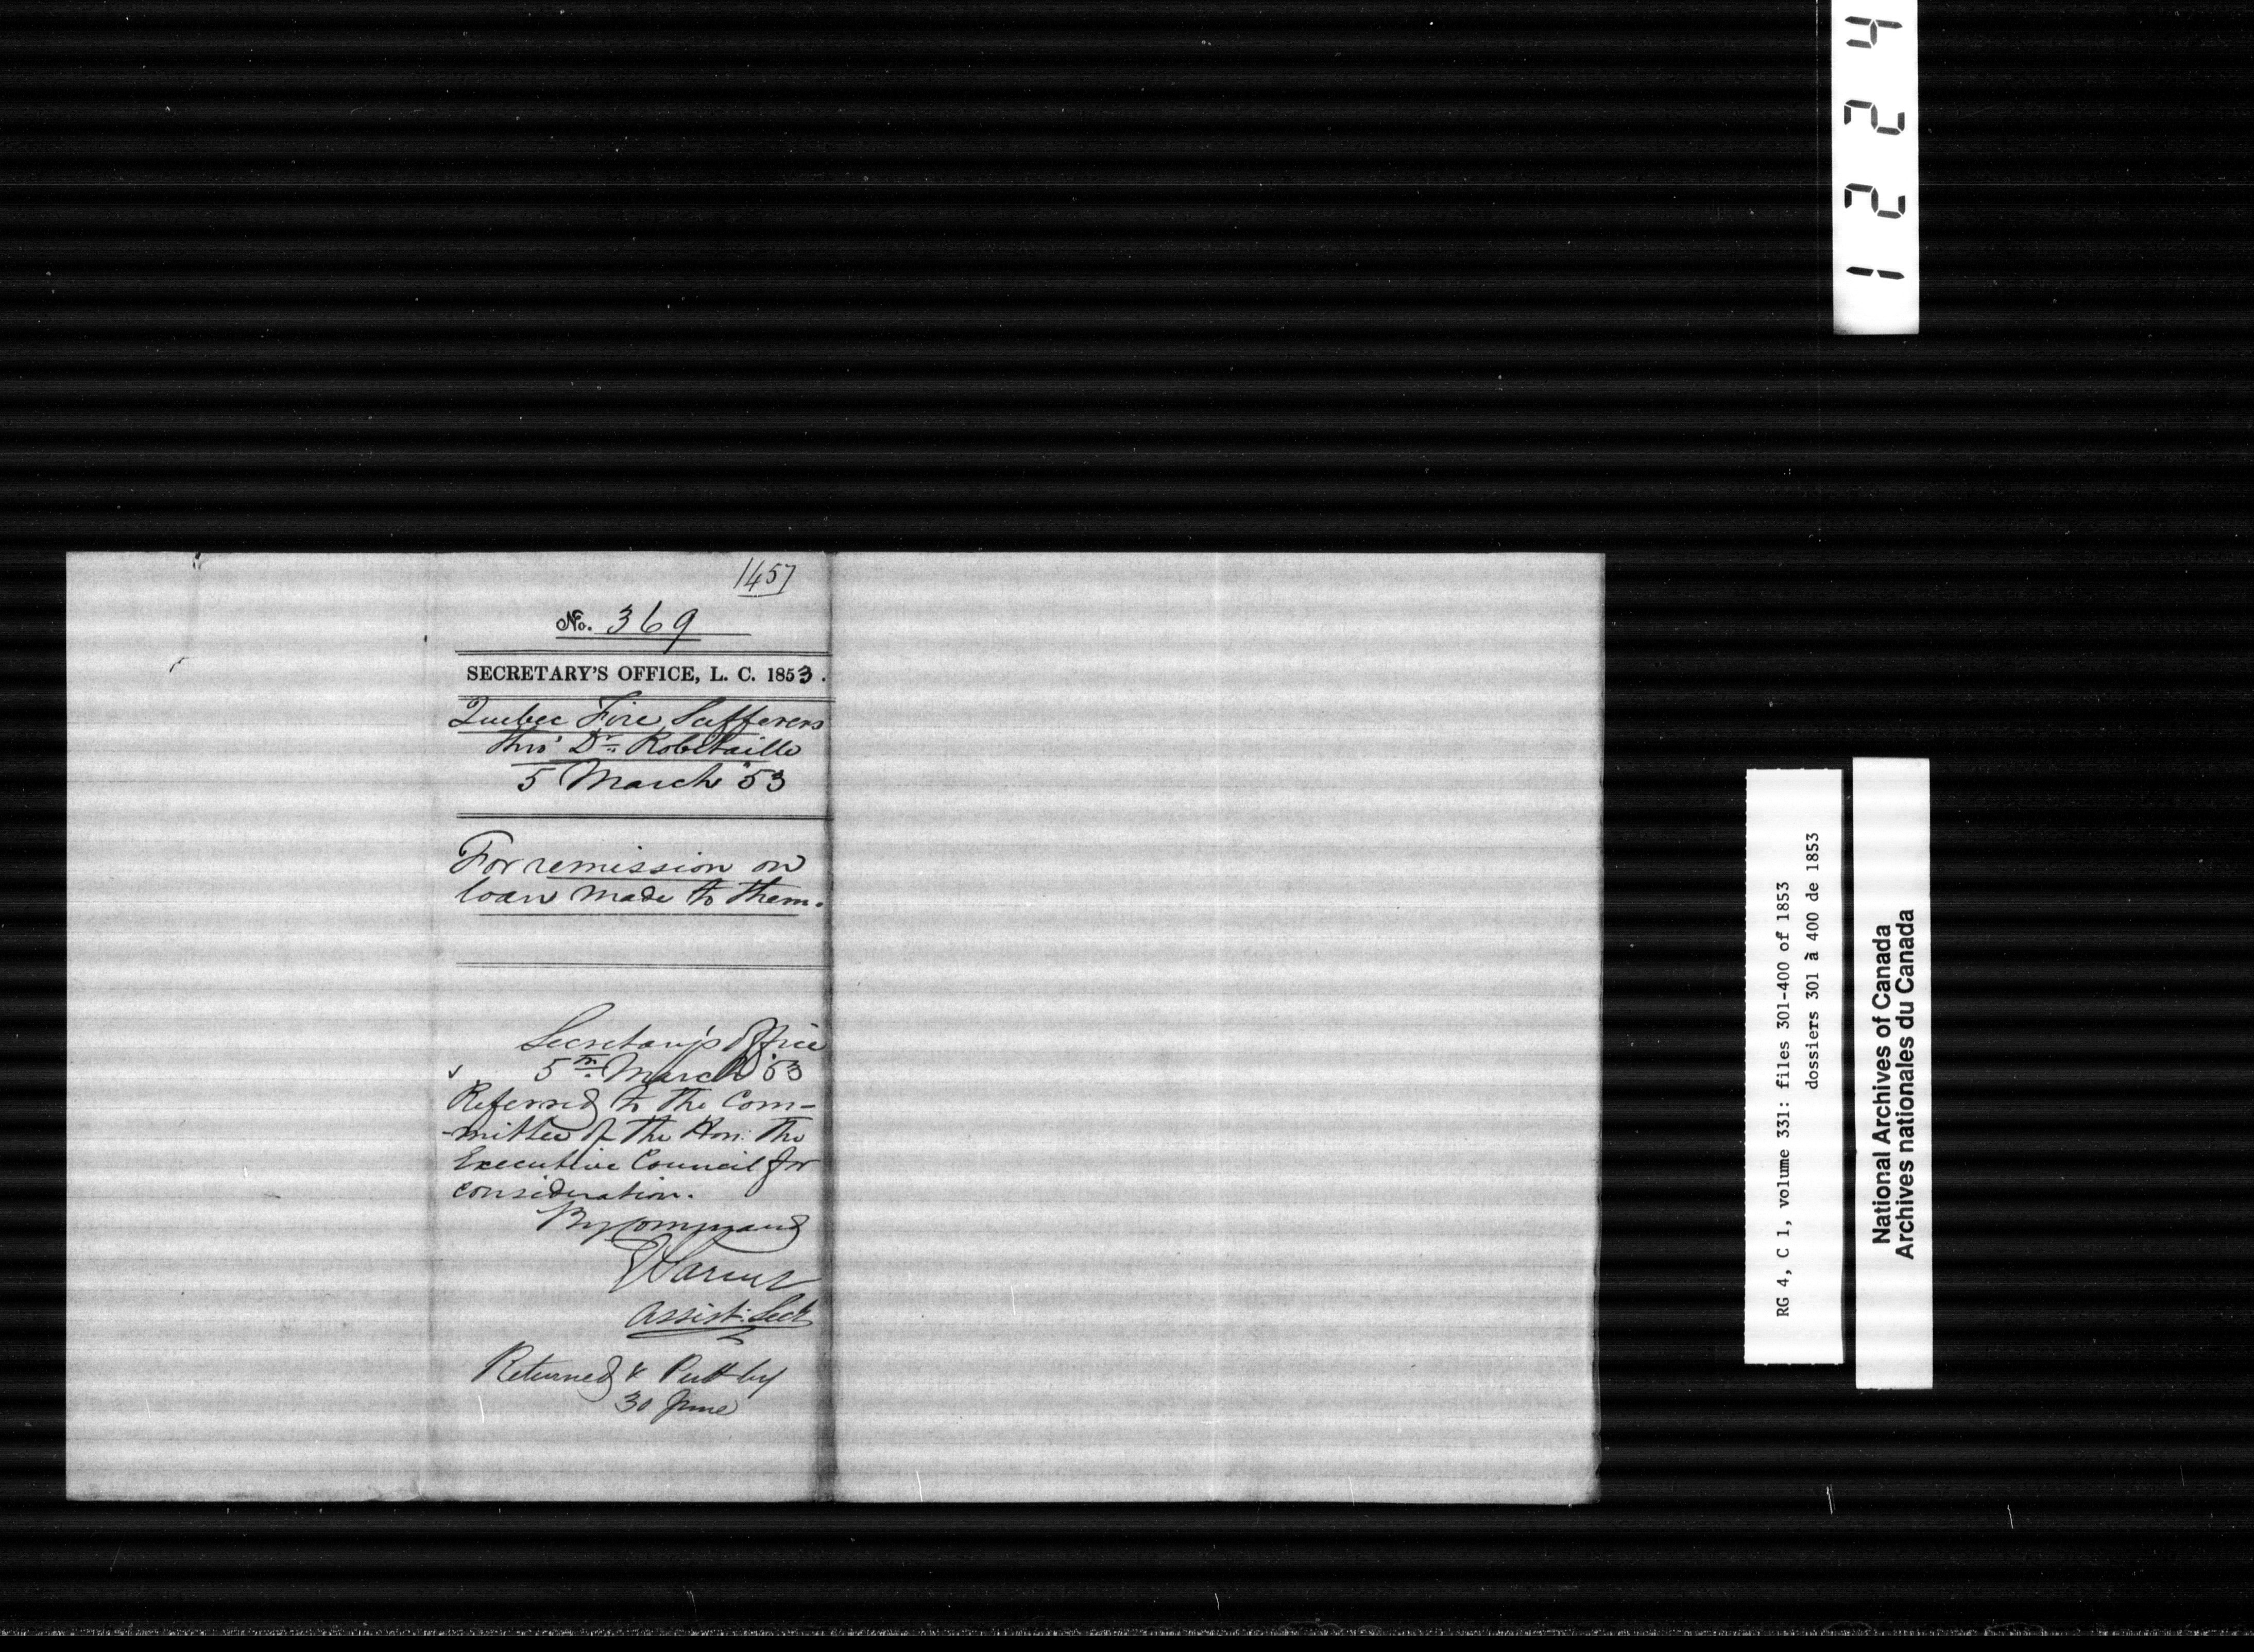 1457
No. 369
SECRETARY'S OFFICE, L. C. 1853.
Quebec Fire Sufferers
thro' Dr. Robitaille
5 March '53
For remission on
loan made to them.
Secretary's Office
5th March '53
Referred to the Com-
-mittee of the Hon: The
Executive Council for
consideration.
By Command
E Parent
Assist: Secr
Returned & Put by
30 June
1224
RG 4, C 1, volume 331: files 301-400 of 1853
dossiers 301 à 400 de 1853
National Archives of Canada
Archives nationales du Canada